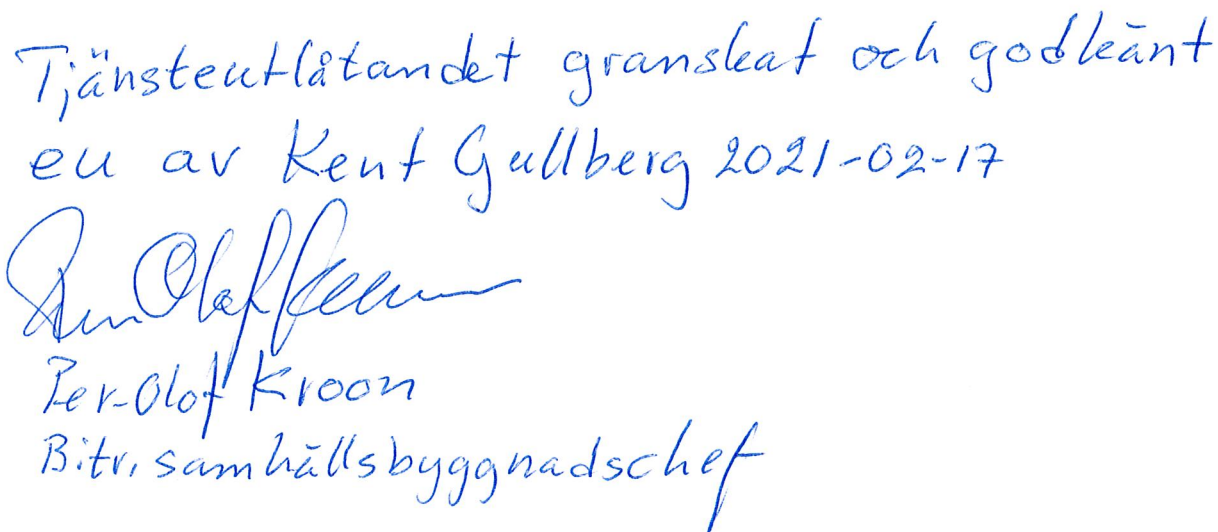 Tjänsteutlåtandet granskat och godkänt
av Kent Gullberg 2021-02-17
Per-Olof Kroon
Bitr. samhällsbyggnadschef